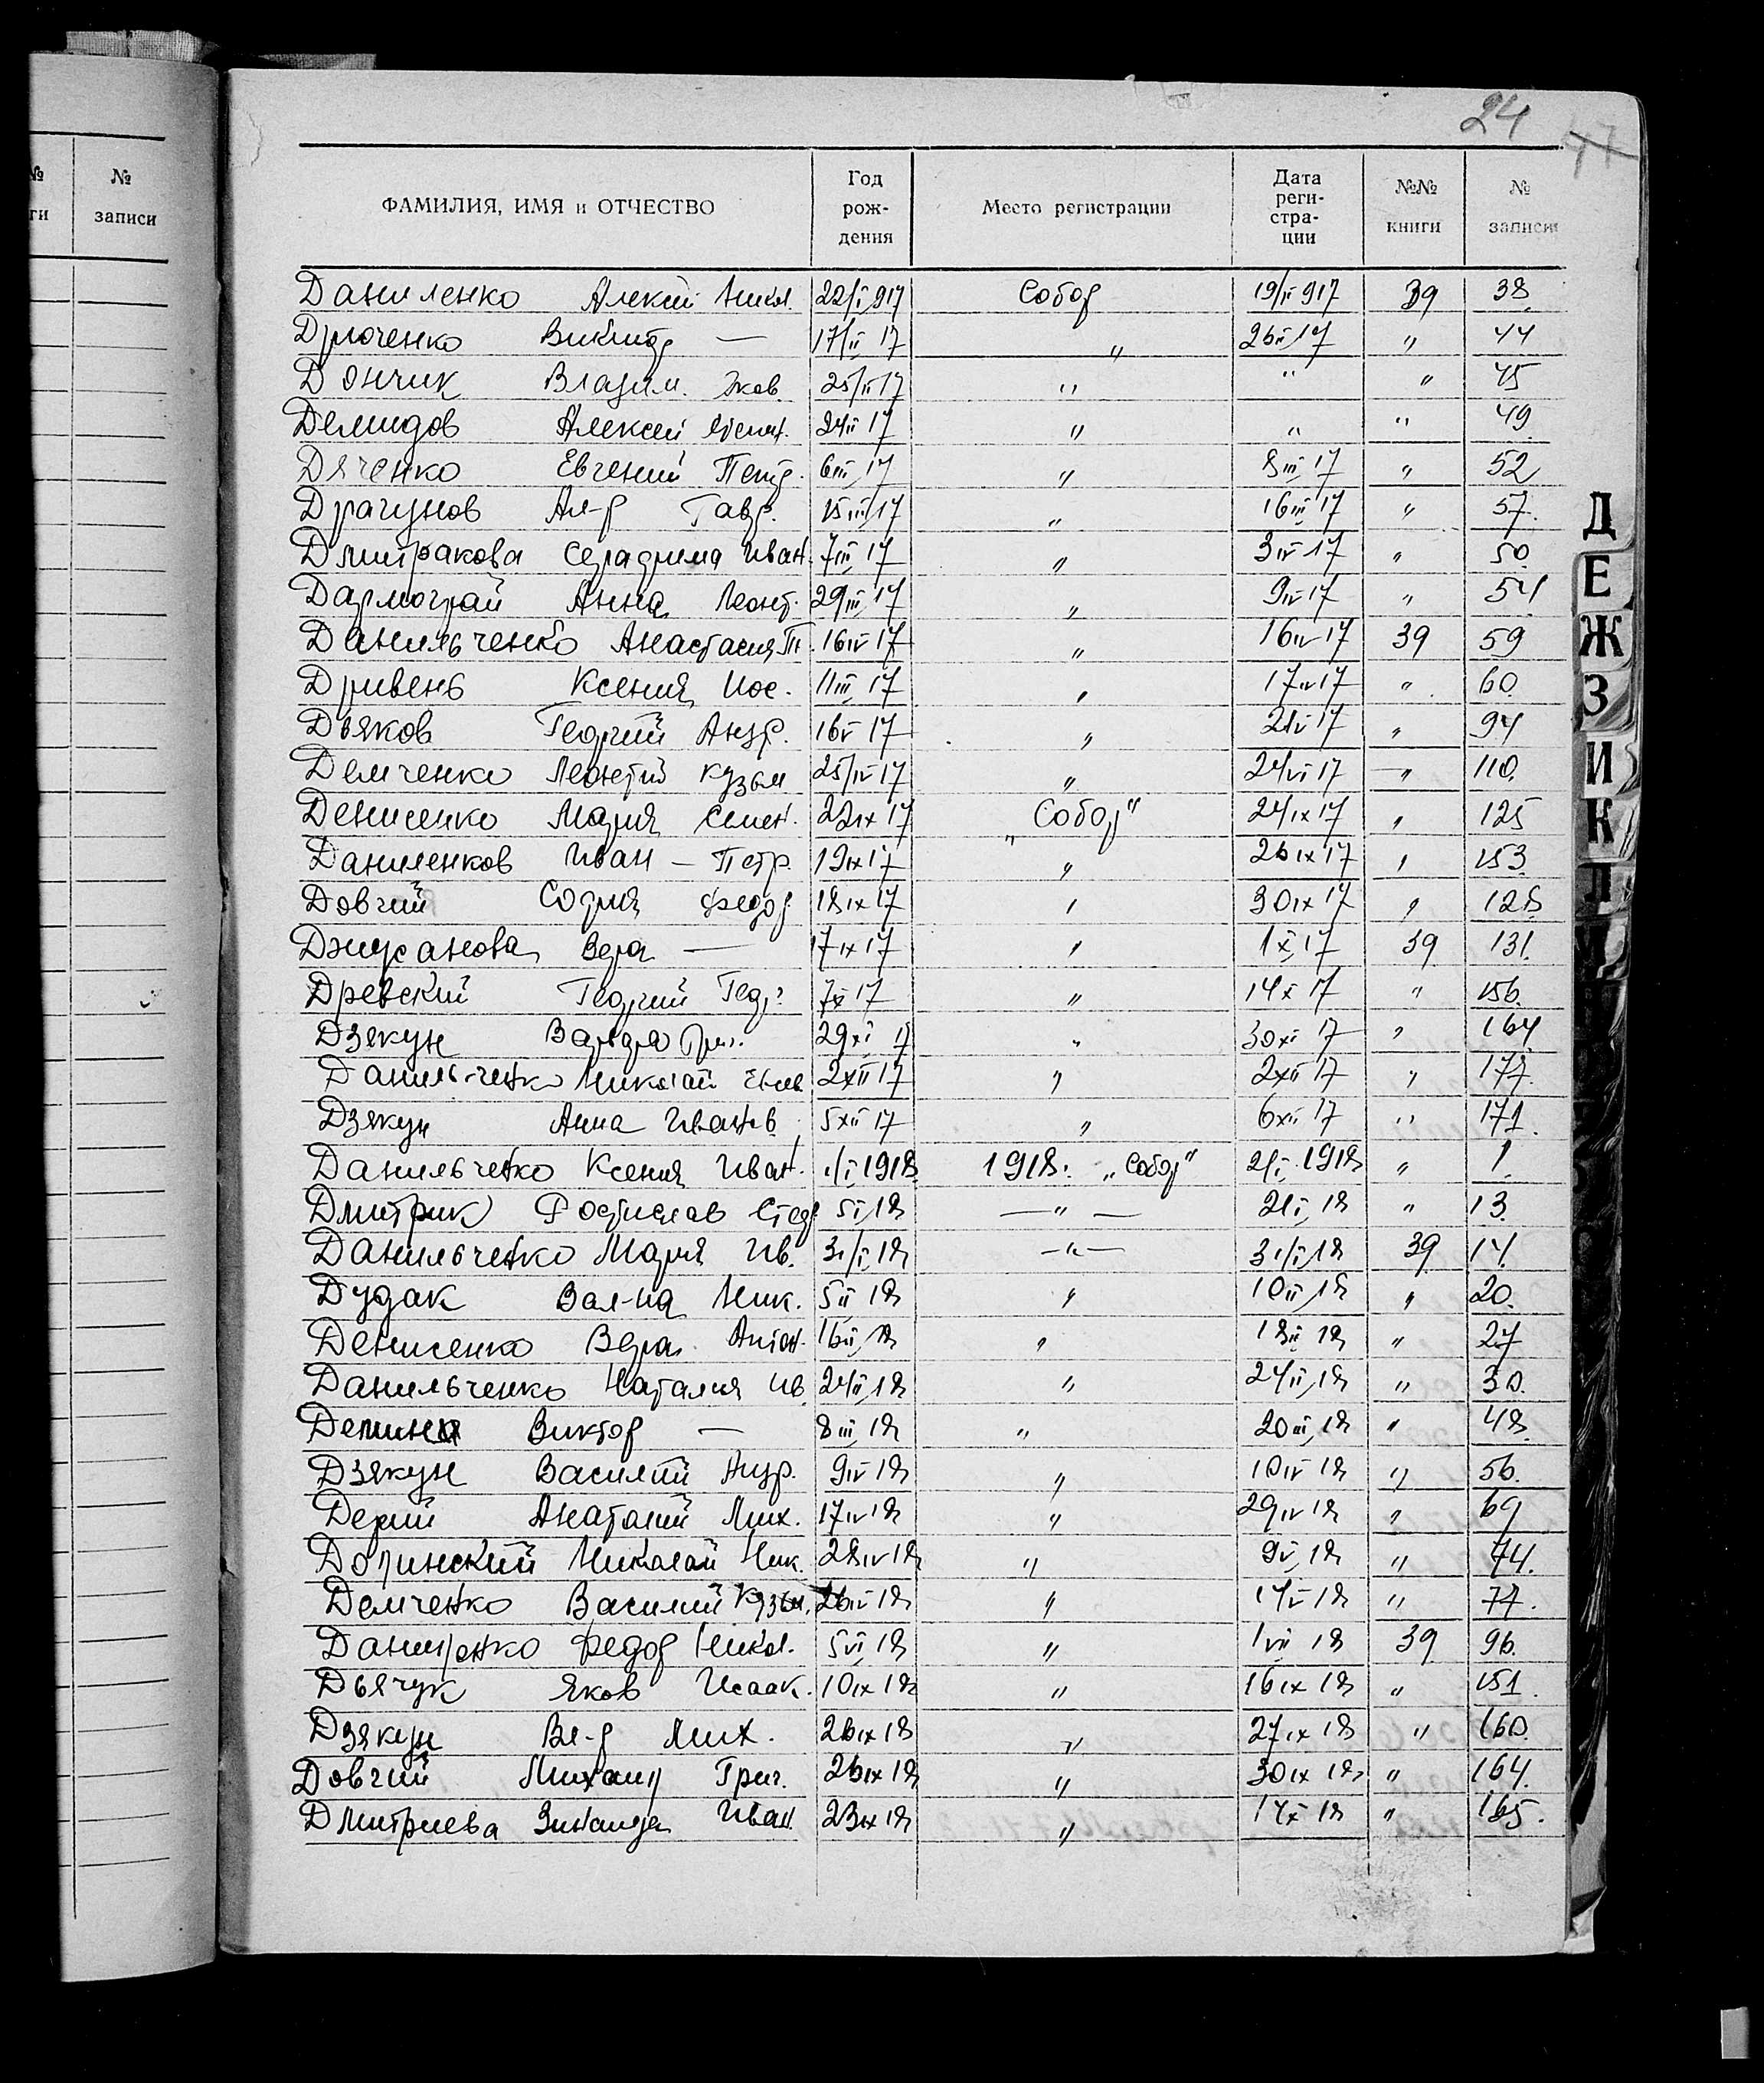 24 47
№ №
ги записи
ФАМИЛИЯ, ИМЯ и ОТЧЕСТВО Год рож- дения Место регистрации Дата реги- стра- ции №№ книги № записи
Даниленко Алексей Никол. 22/I 917 Собор 19/II 917 39 38.
Дрюченко Виктор — 17/II 17 " 26II 17 " 44
Дончик Владим. Яков. 25/II 17 " " " 45
Демидов Алексей 24II 17 " " " 49
Дяченко Евгений Петр. 6III 17 " 8III 17 " 52
Драгунов Ал-р Гавр. 15III 17 " 16III 17 " 57.
Дмитракова Серафима Иван. 7III 17 " 3IV 17 " 50.
Дармограй Анна Леонт. 29III 17 " 9IV 17 " 54
Данильченко Анастасия П. 16IV 17 " 16IV 17 39 59
Дривень Ксения Иос. 11III 17 " 17IV 17 " 60.
Дьяков Георгий Андр. 16V 17 " 21V 17 " 94
Демченко Леонтий Кузьм 25/IV 17 " 24VI 17 " 110.
Денисенко Мария Семен. 22IX 17 „Собор" 24IX 17 " 125
Даниленков Иван — Петр. 19IX 17 " 26IX 17 " 153.
Довгий София Федор 18IX 17 " 30IX 17 " 128
Джусанова Вера — 17IX 17 " 1X 17 39 131.
Древский Георгий Геор. 7X 17 " 14X 17 " 156.
Дзякун Варвара Григ. 29XI 17 " 30XI 17 " 164
Данильченко Николай 2XII 17 " 2XII 17 " 177.
Дзякун Анна Иванов. 5XII 17 " 6XII 17 " 171.
Данильченко Ксения Иван. 1/I 1918. 1918г. „Собор" 2/I 1918 " 1.
Дмитрик Ростислав 5I 18 — " — 21I 18 " 13.
Данильченко Мария Ив. 31/I 18 — " — 31/I 18 39 14.
Дудак Вал-на Ник. 5II 18 " 10II 18 " 20.
Денисенко Вера Антон. 16II 18 " 18II 18 " 27
Данильченко Наталия Ив 24II 18 " 24II 18 " 30.
Виктор — 8III 18 " 20III 18 " 48.
Дзякун Василий Андр. 9IV 18 " 10IV 18 " 56.
Дерий Анатолий Мих. 17IV 18 " 29IV 18 " 69
Долинский Николай Ник. 28IV 18 " 9V 18 " 74.
Демченко Василий Кузьм. 26IV 18 " 14V 18 " 77.
Федор Никол. 5VI 18 " 1VII 18 39 96.
Дьячук Яков Исаак. 10IX 18 " 16IX 18 " 151.
Дзякун Вл-р Мих. 26IX 18 " 27IX 18 " 160.
Довгий Михаил Григ. 26IX 18 " 30IX 18 " 164.
Дмитриева Зинаида Иван 23IX 18 " 14X 18 " 165.
Д
Е
Ж
З
И
К
Л